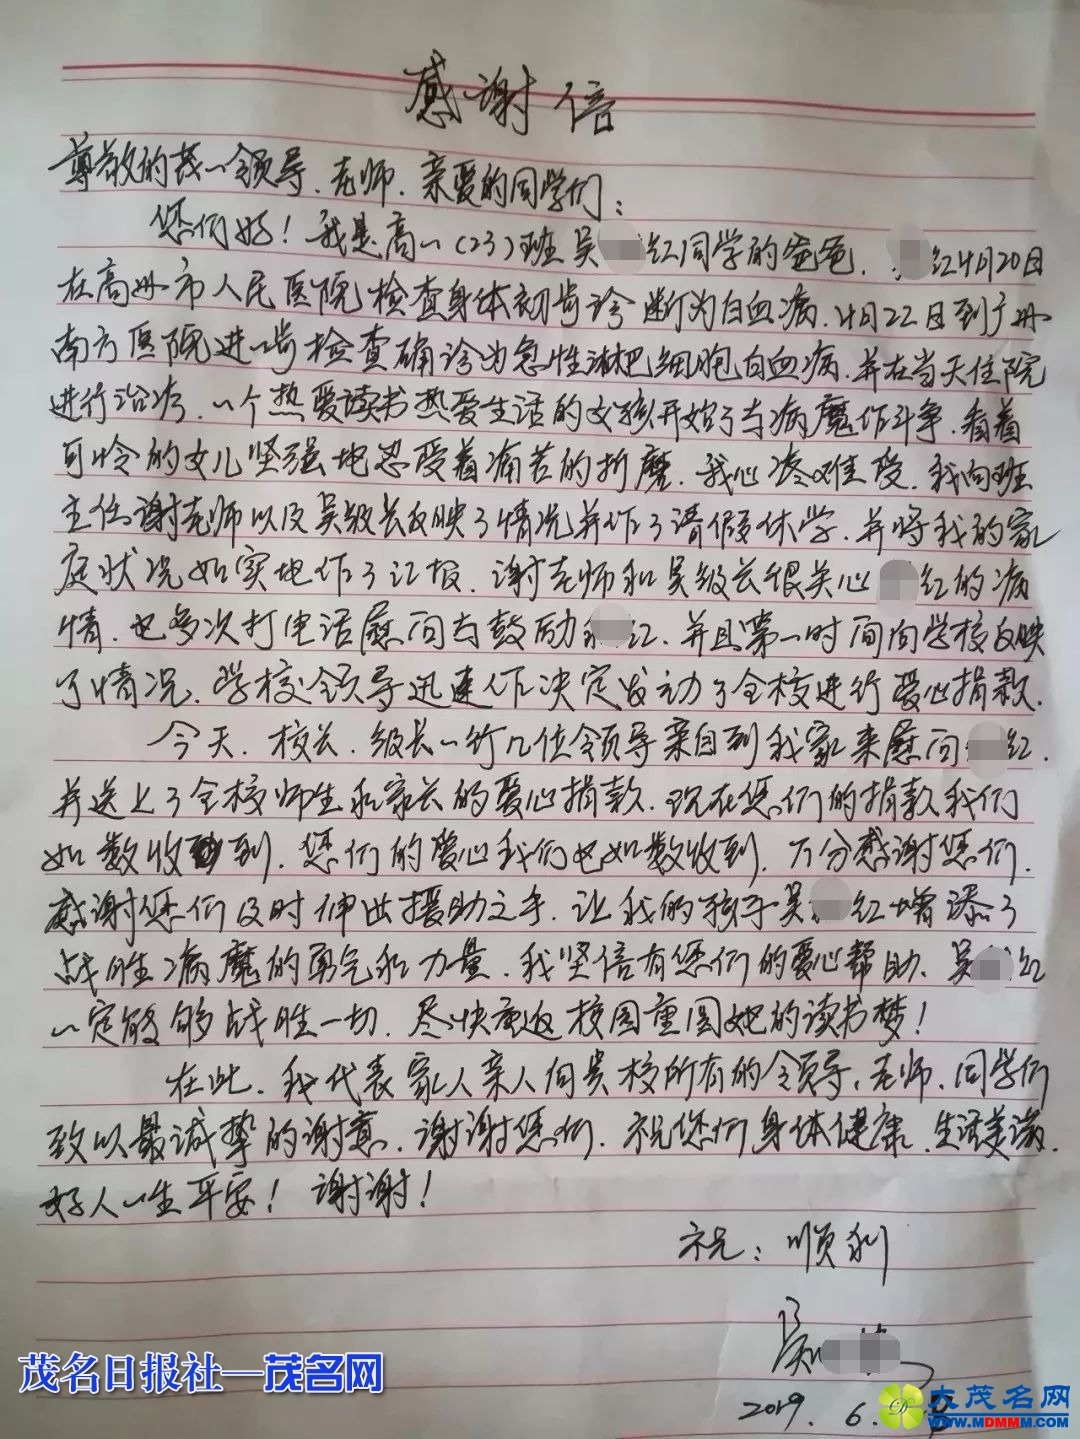 感谢信
尊敬的茂一领导、老师、亲爱的同学们：
您们好！我是高一（23）班吴红同学的爸爸，红4月20日
在高州市人民医院检查身体初步诊断为白血病，4月22日到广州
南方医院进一步检查确诊为急性淋巴细胞白血病，并在当天住院
进行治疗，一个热爱读书热爱生活的女孩开始了与病魔作斗争，看着
可怜的女儿坚强地忍受着痛苦的折磨，我心疼难受，我向班
主任谢老师以及吴级长反映了情况并作了请假休学，并将我的家
庭状况如实地作了汇报，谢老师和吴级长很关心红的病
情，也多次打电话慰问与鼓励红，并且第一时间向学校反映
了情况，学校领导迅速作决定发动了全校进行爱心捐款。
今天，校长、级长一行几位领导亲自到我家来慰问红，
并送上了全校师生和家长的爱心捐款，现在您们的捐款我们
如数收到，您们的爱心我们也如数收到，万分感谢您们，
感谢您们及时伸出援助之手，让我的孩子吴红增添了
战胜病魔的勇气和力量，我坚信有您们的爱心帮助，吴红
一定能够战胜一切，尽快重返校园重圆她的读书梦！
在此，我代表家人亲人向贵校所有的领导、老师、同学们
致以最诚挚的谢意，谢谢您们，祝您们身体健康，生活美满，
好人一生平安！谢谢！
祝：顺利
吴
2019.6.
茂名日报社—茂名网
大茂名网
WWW.MDMMM.COM